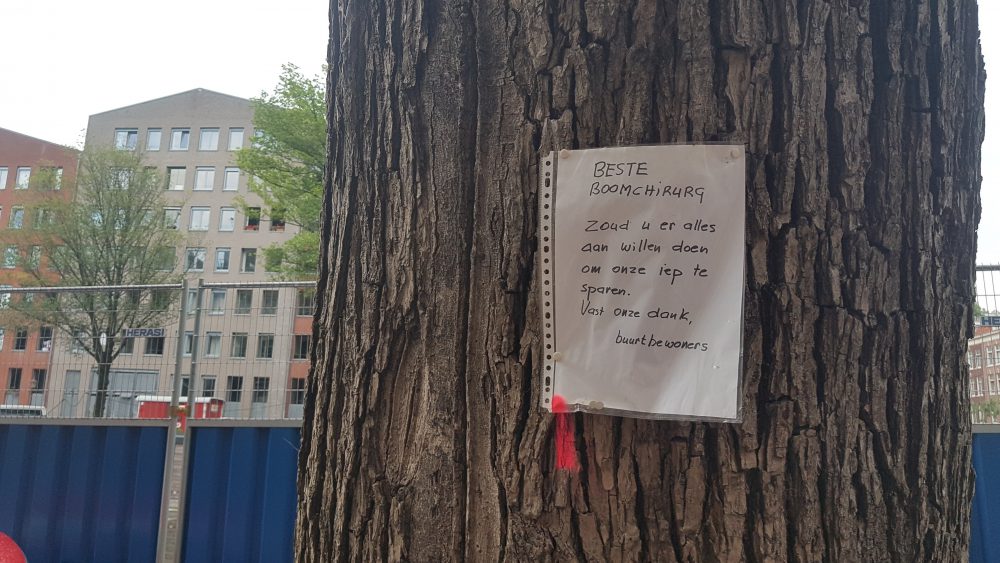 BESTE
BOOMCHIRURG
Zoud u er alles
aan willen doen
om onze iep te
sparen.
Vast onze dank,
buurtbewoners
HERAS